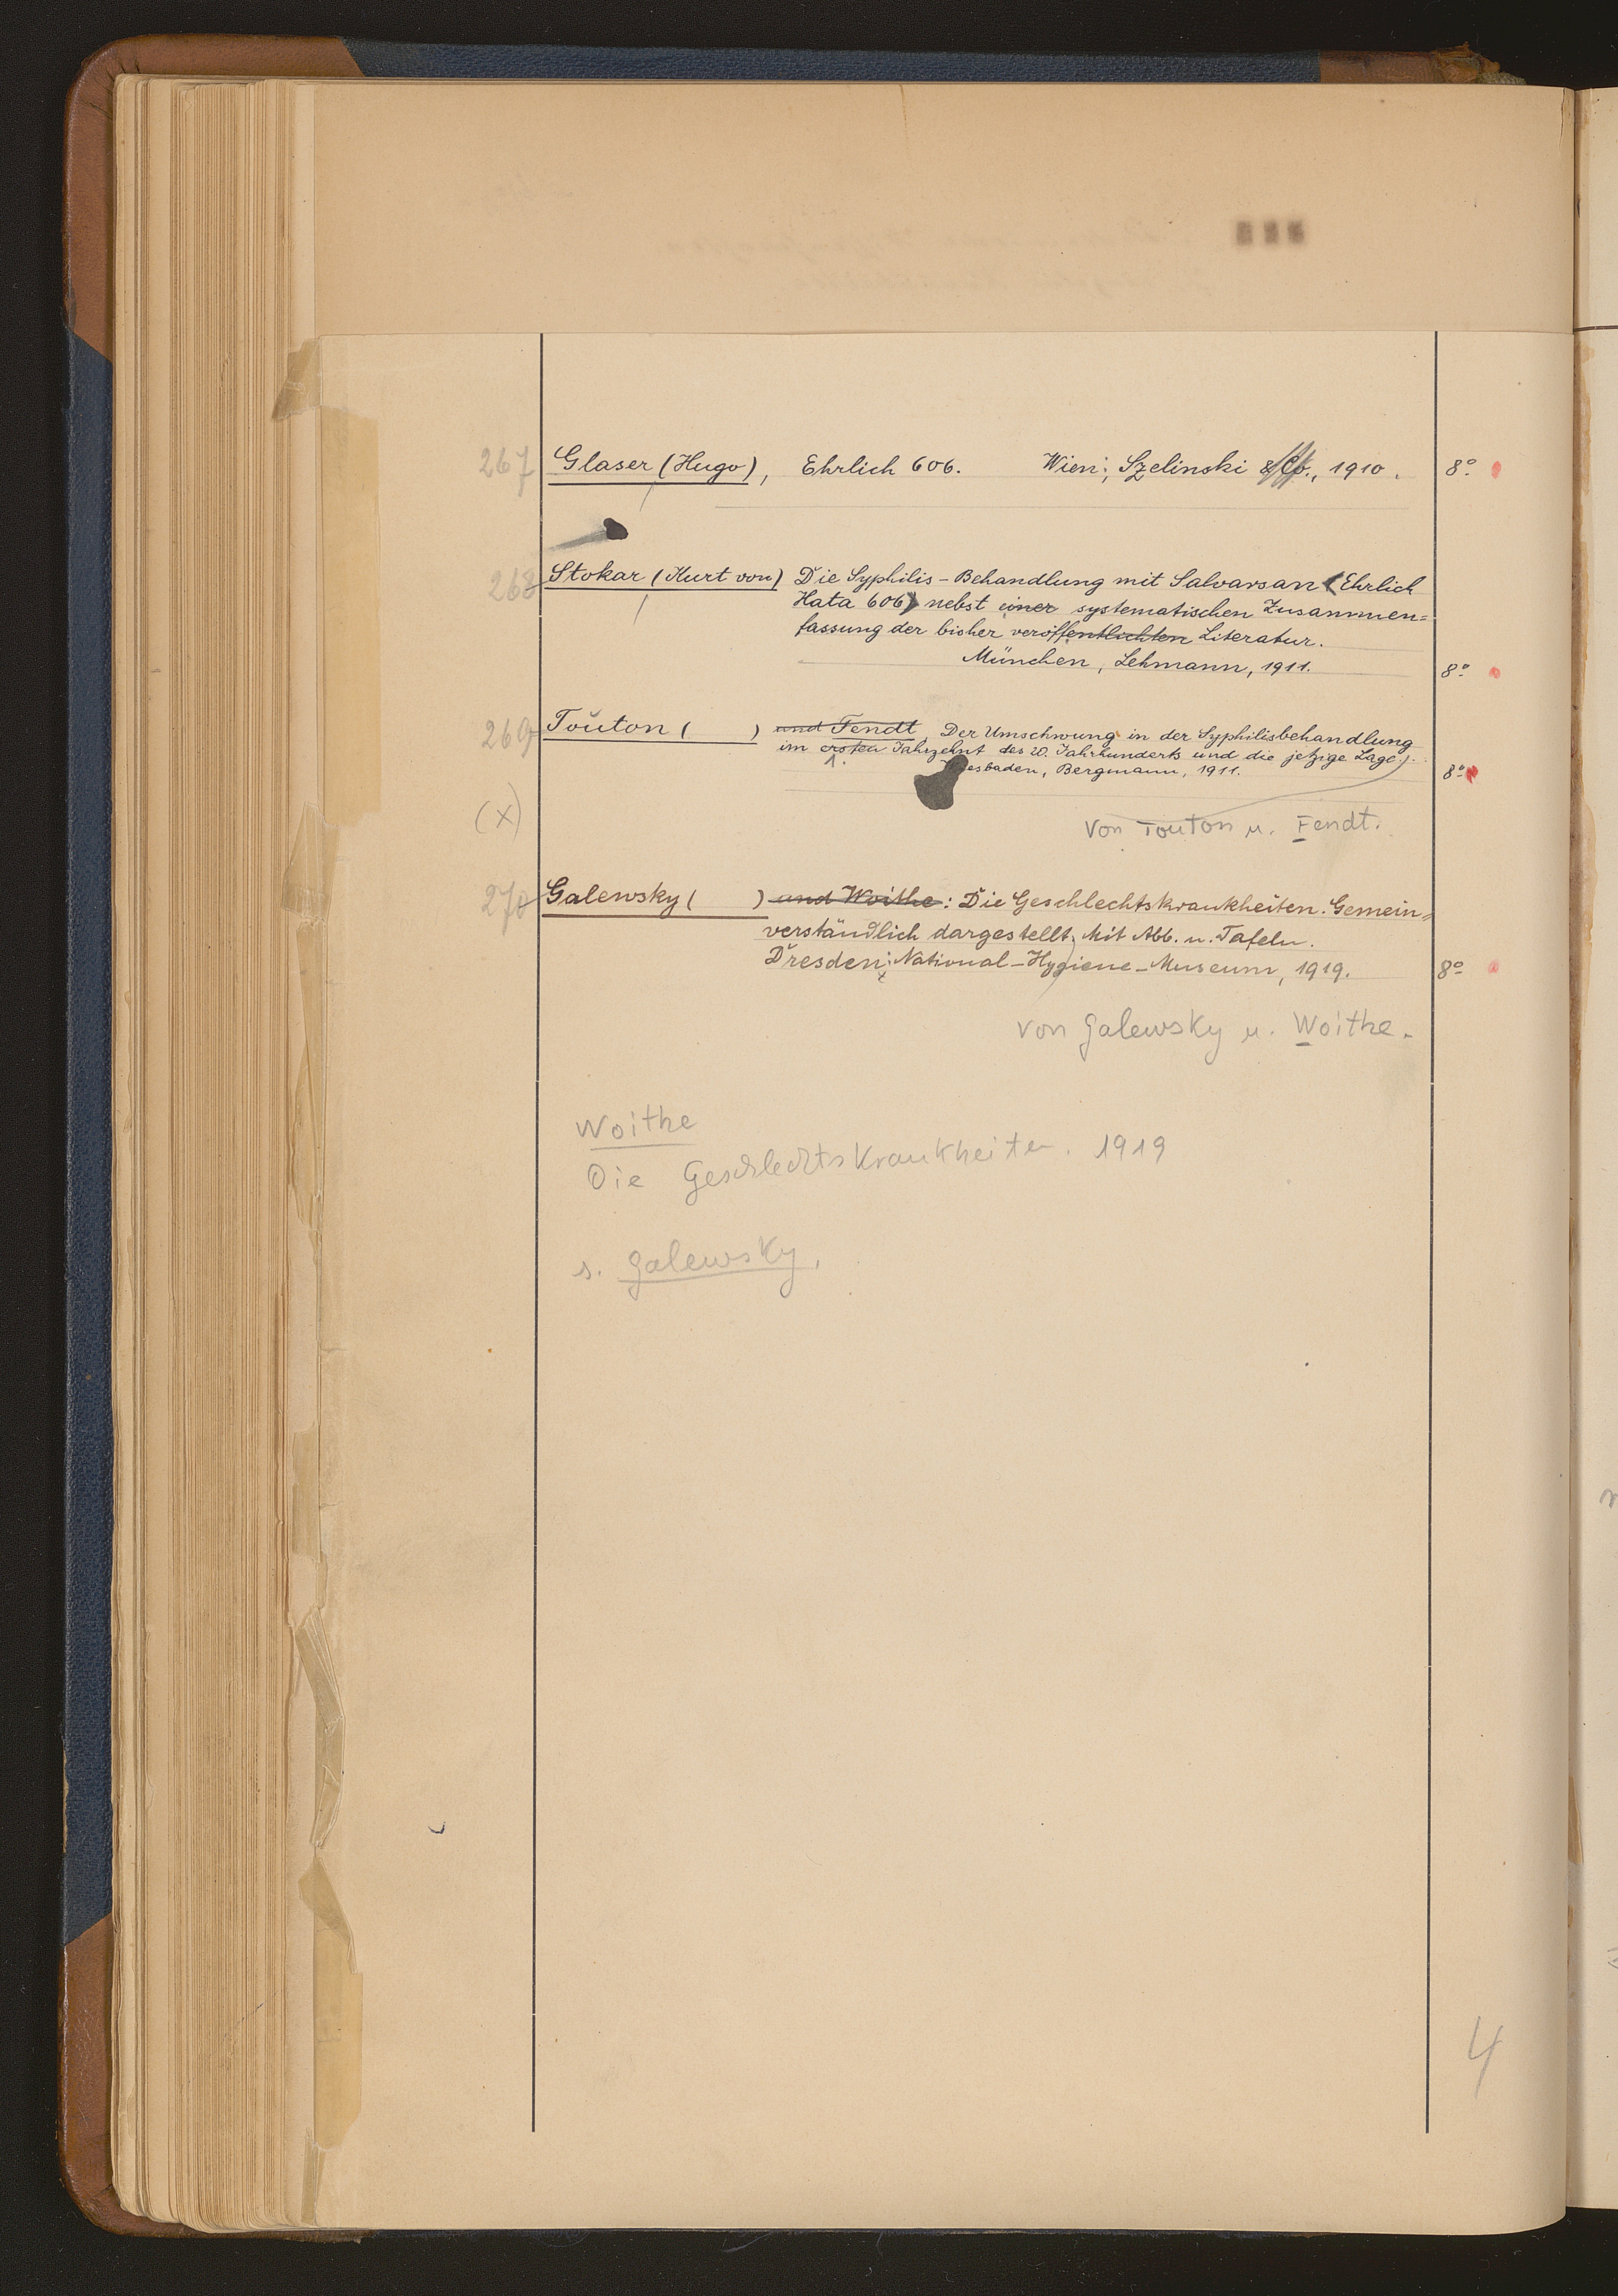 267 Glaser (Hugo), Ehrlich 606. Wien; Szelinski & Co., 1910. 8°
268 Stokar (Kurt von) Die Syphilis-Behandlung mit Salvarsan (Ehrlich
Hata 606) nebst einer systematischen Zusammen=
fassung der bisher veröffentlichten Literatur.
München, Lehmann, 1911. 8°
269 Touton ( ) und Fendt, Der Umschwung in der Syphilisbehandlung
im ersten Jahrzehnt des 20. Jahrhunderts und die jetzige Lage).
1.
esbaden, Bergmann, 1911. 8°
(x)
Von Touton u. Fendt.
270 Galewsky ( ) und Woithe: Die Geschlechtskrankheiten. Gemein=
verständlich dargestellt, Mit Abb. u. Tafeln.
Dresden; National-Hygiene-Museum, 1919. 8°
von Galewsky u. Woithe.
Woithe
Die Geschlechtskrankheiten. 1919
s. Galewsky,
4